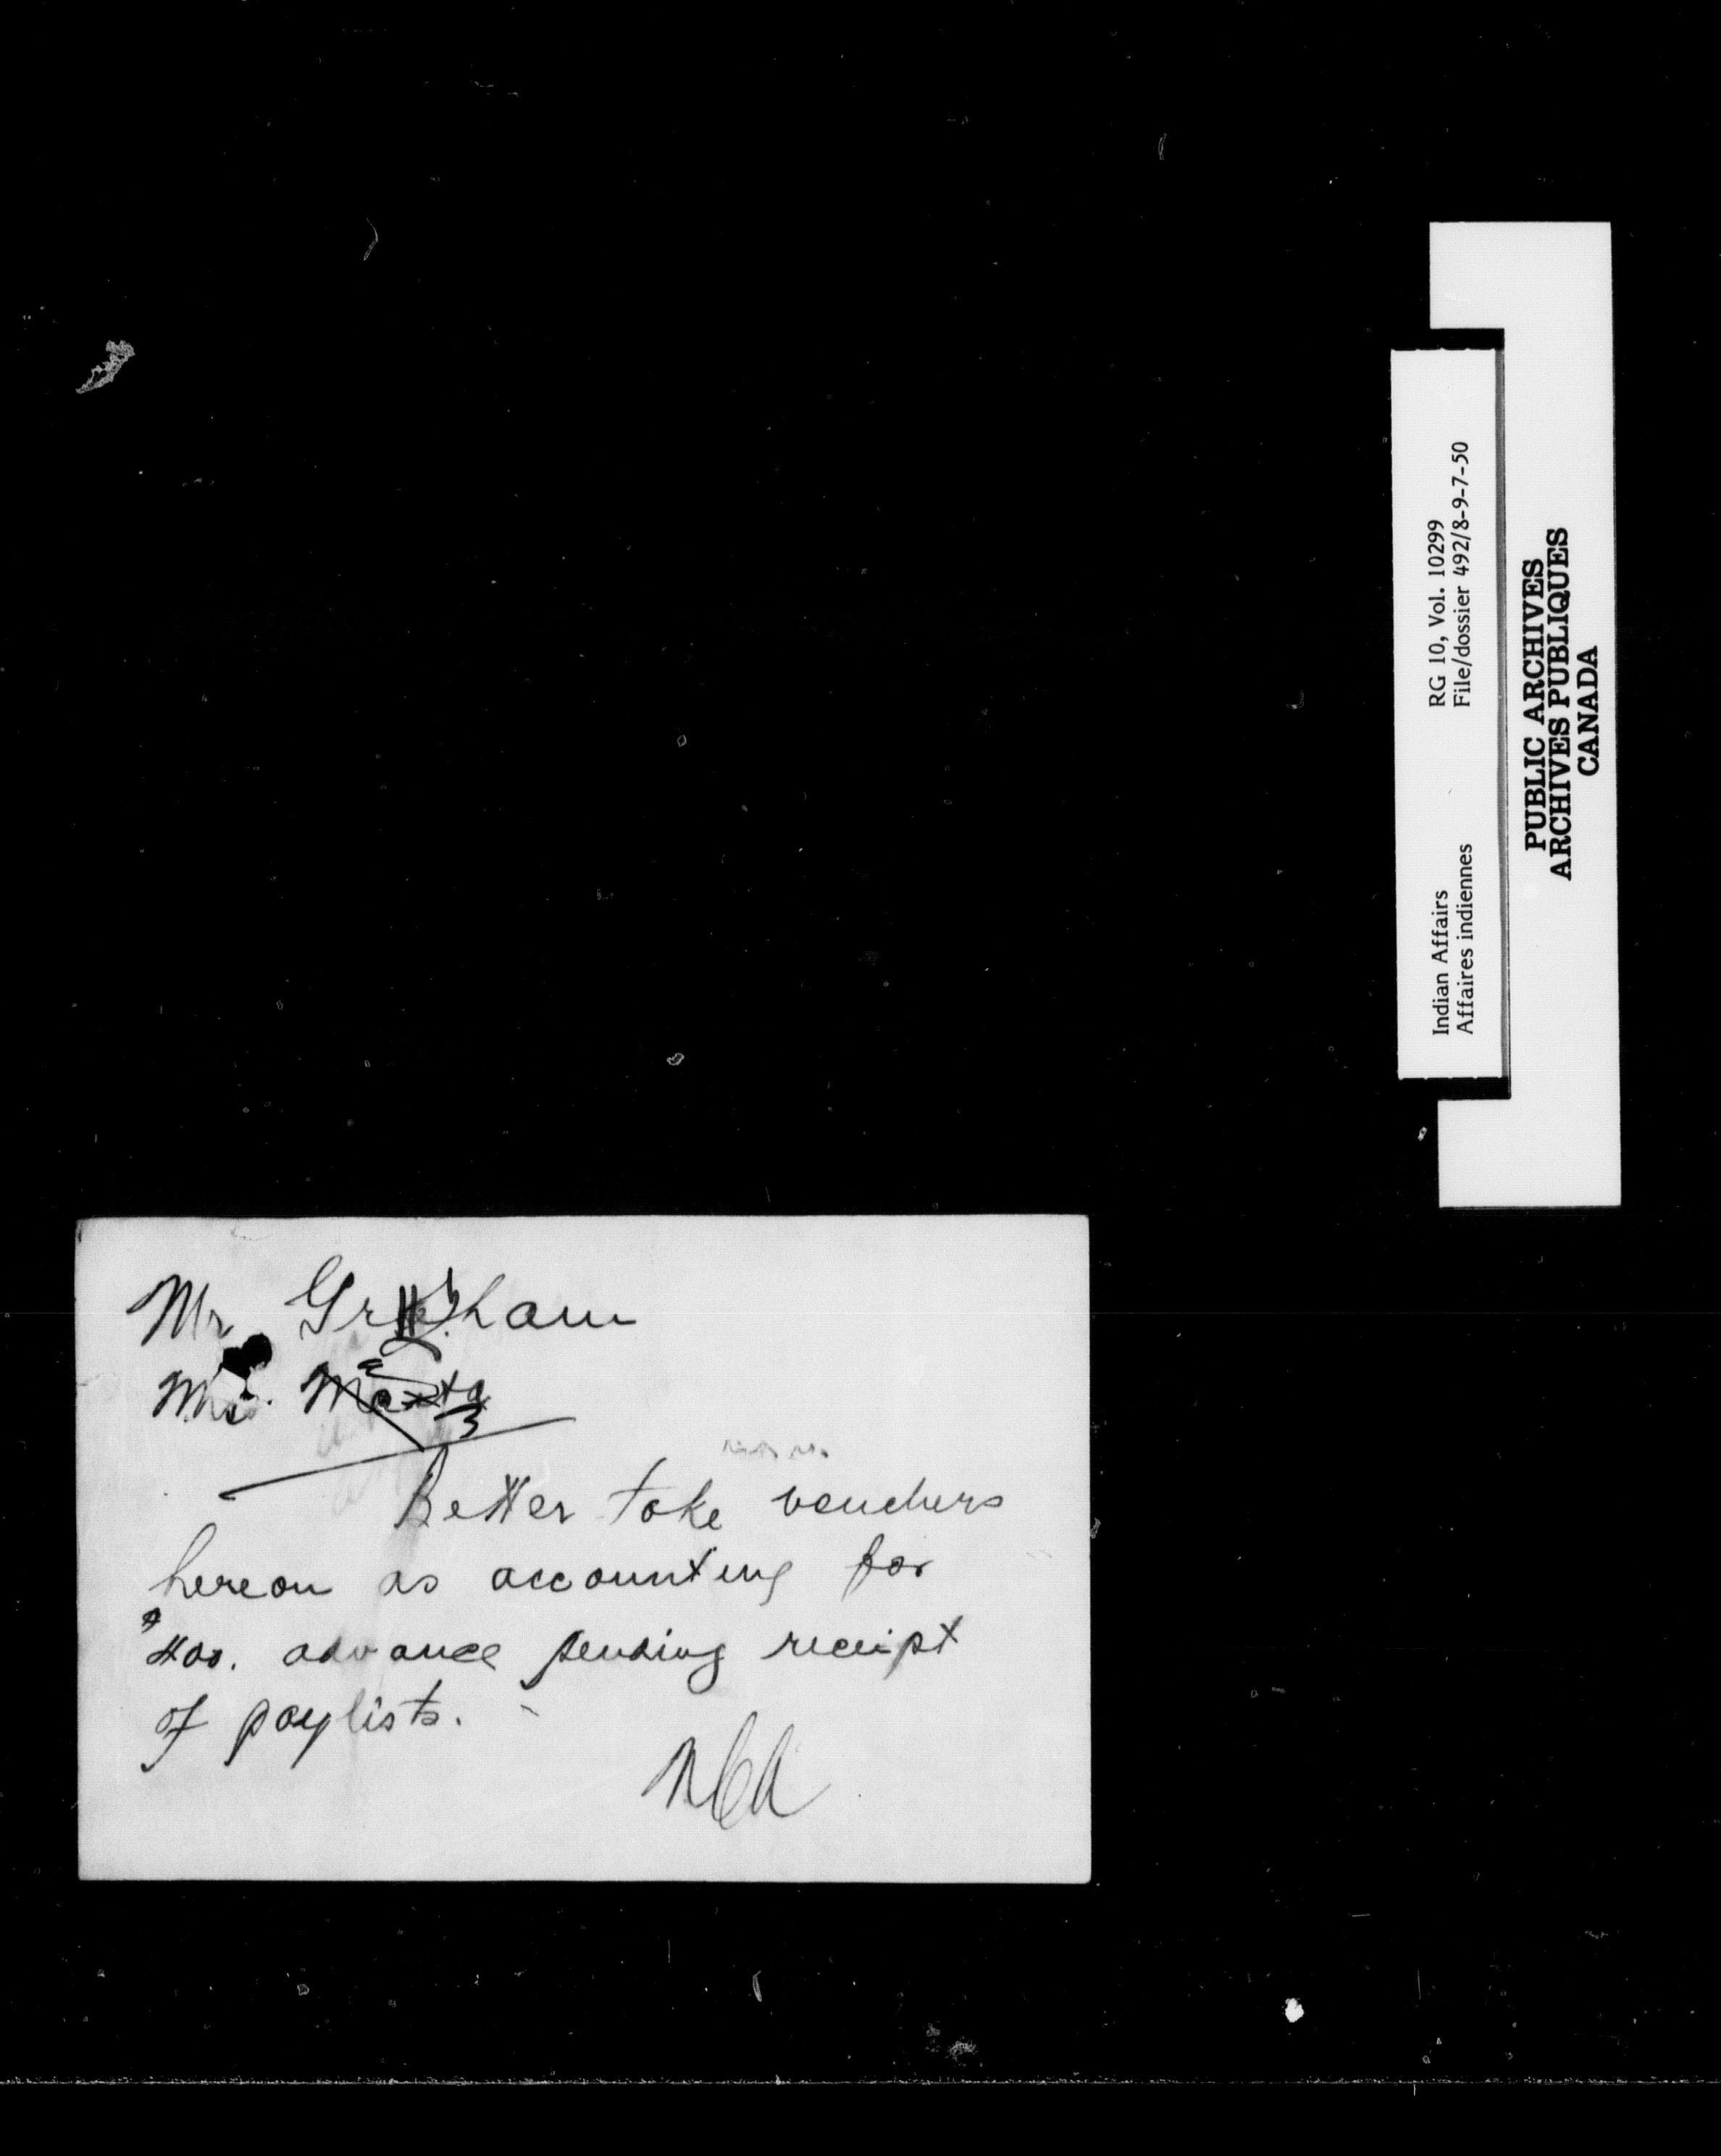 Mr. Gresham
Better take vouchers
hereon as accounting for
$400. advance pending receipt
of paylists.
Indian Affairs RG 10, Vol. 10299
Affaires indiennes File/dossier 492/8-9-7-50
PUBLIC ARCHIVES
ARCHIVES PUBLIQUES
CANADA